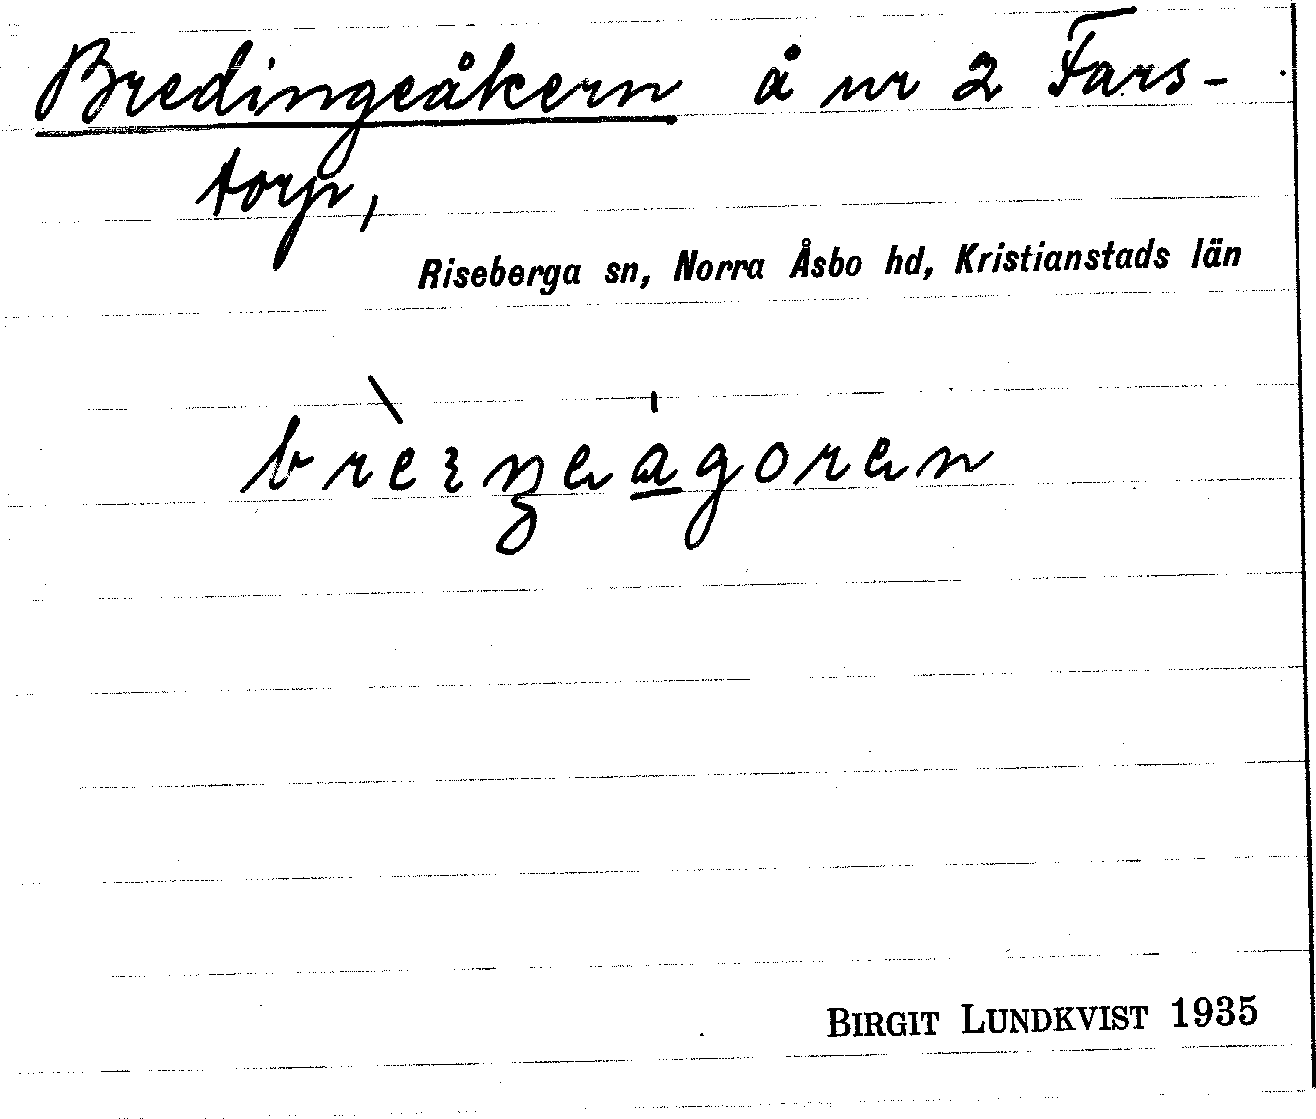 Bredingeåkern å nr 2 Fars-
torp,
Riseberga sn, Norra Åsbo hd, Kristianstads län
BIRGIT LUNDKVIST 1935